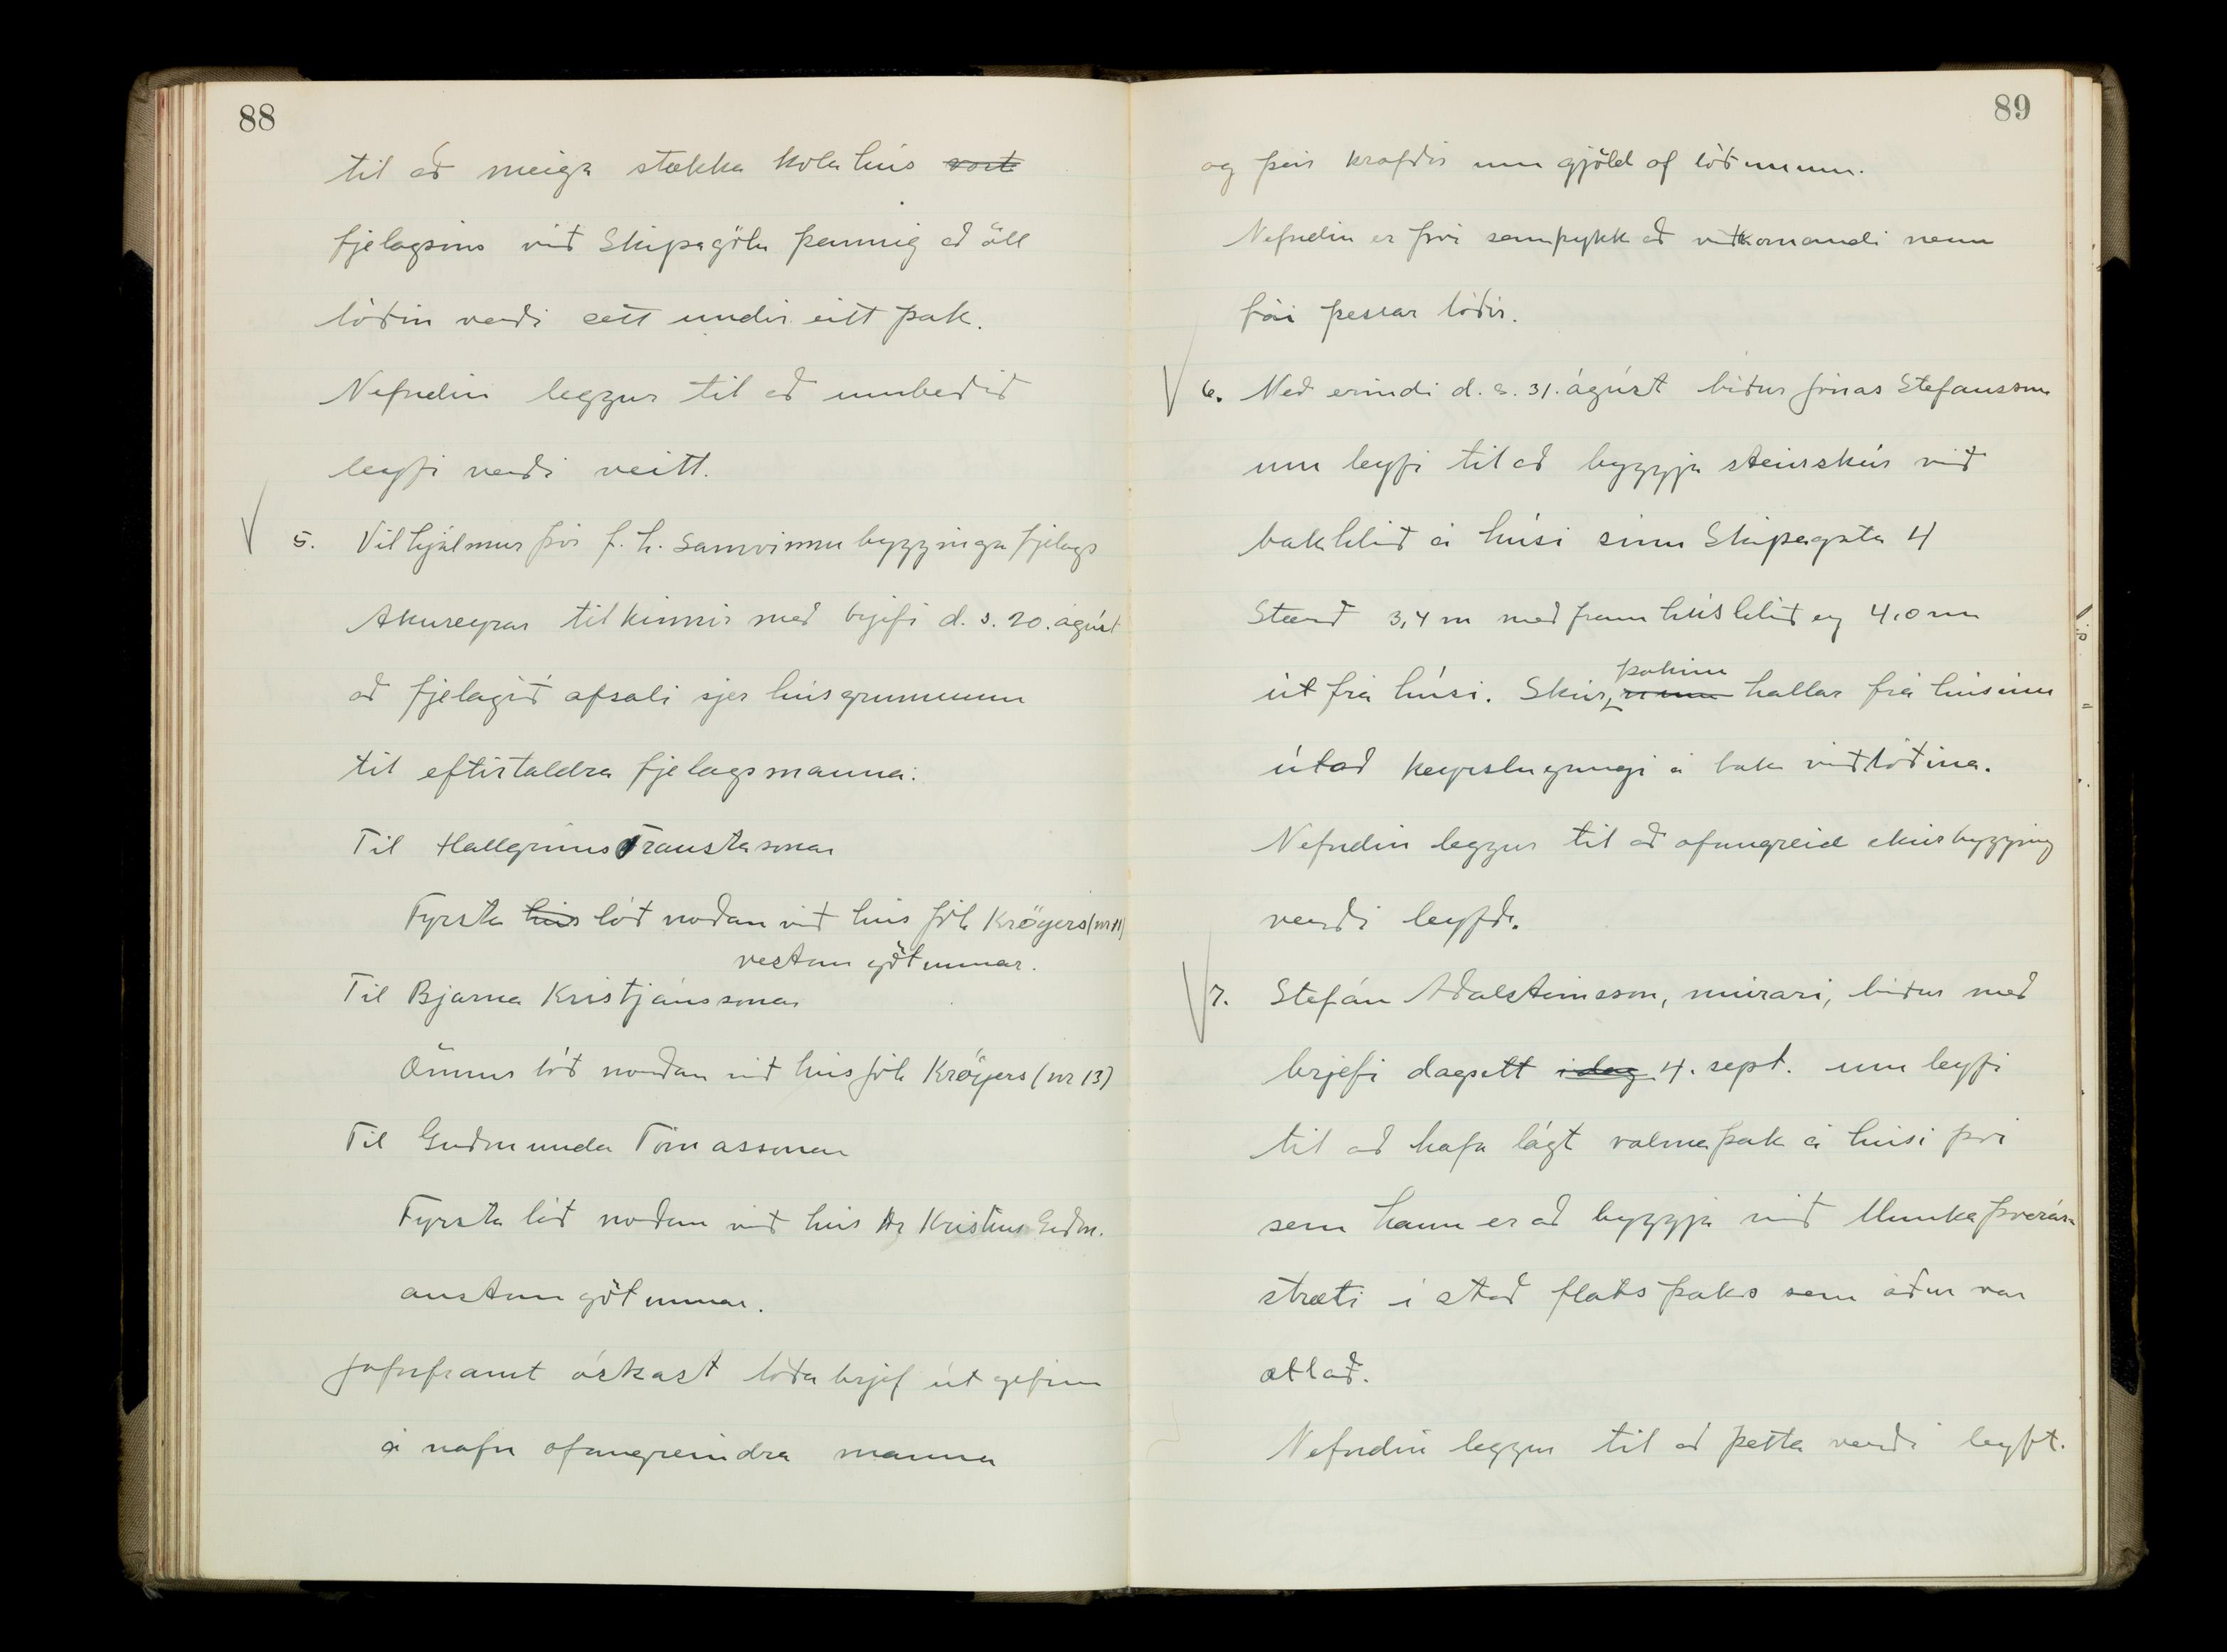 88
til að meiga stækka kolahús vort
fjelagsins við Skipagötu þannig að öll
lóðin verði sett undir eitt þak.
Nefndin leggur til að umbeðið
leyfi verði veitt.
5. Vilhjálmur Þór f. h. Samvinnubyggingafjelags
Akureyrar tilkinnir með brjefi d. s. 20. ágúst
að fjelagið afsali sjer húsgrunnunum
til eftirtaldra fjelagsmanna:
Til Hallgríms Traustasonar
Fyrsta hús lóð norðan við hús Jóh Krögers (nr 11)
vestan götunnar.
Til Bjarna Kristjánssonar
Önnur lóð norðan við hús Jóh Krögers (nr 13)
Til Guðmundar Tómassonar
Fyrsta lóð norðan við hús Kristins Guðm.
austan götunnar.
Jafnframt óskast lóðabrjef út gefin
á nafn ofangreindra manna
89
og þeir krafðir um gjöld af lóðunum.
Nefndin er því samþykk að viðkomandi menn
fái þessar lóðir.
6. Með erindi d. s. 31. ágúst biður Jónas Stefansson
um leyfi til að byggja steinskúr við
bakhlið á húsi sínu Skipagata 4
Stærð 3,4 m með fram húshlið og 4,0 m
þakinu
út frá húsi. Skúr hallar frá húsinu
útað keyrslugangi á bak við lóðina.
Nefndin leggur til að ofangreind skúrbygging
verði leyfð.
7. Stefán Aðalsteinsson, múrari, biður með
brjefi dagsett í dag 4. sept. um leyfi
til að hafa lágt valmaþak á húsi því
sem hann er að byggja við Munkaþverár-
stræti í stað flats þaks sem áður var
ætlað.
Nefndin leggur til að þetta verði leyft.